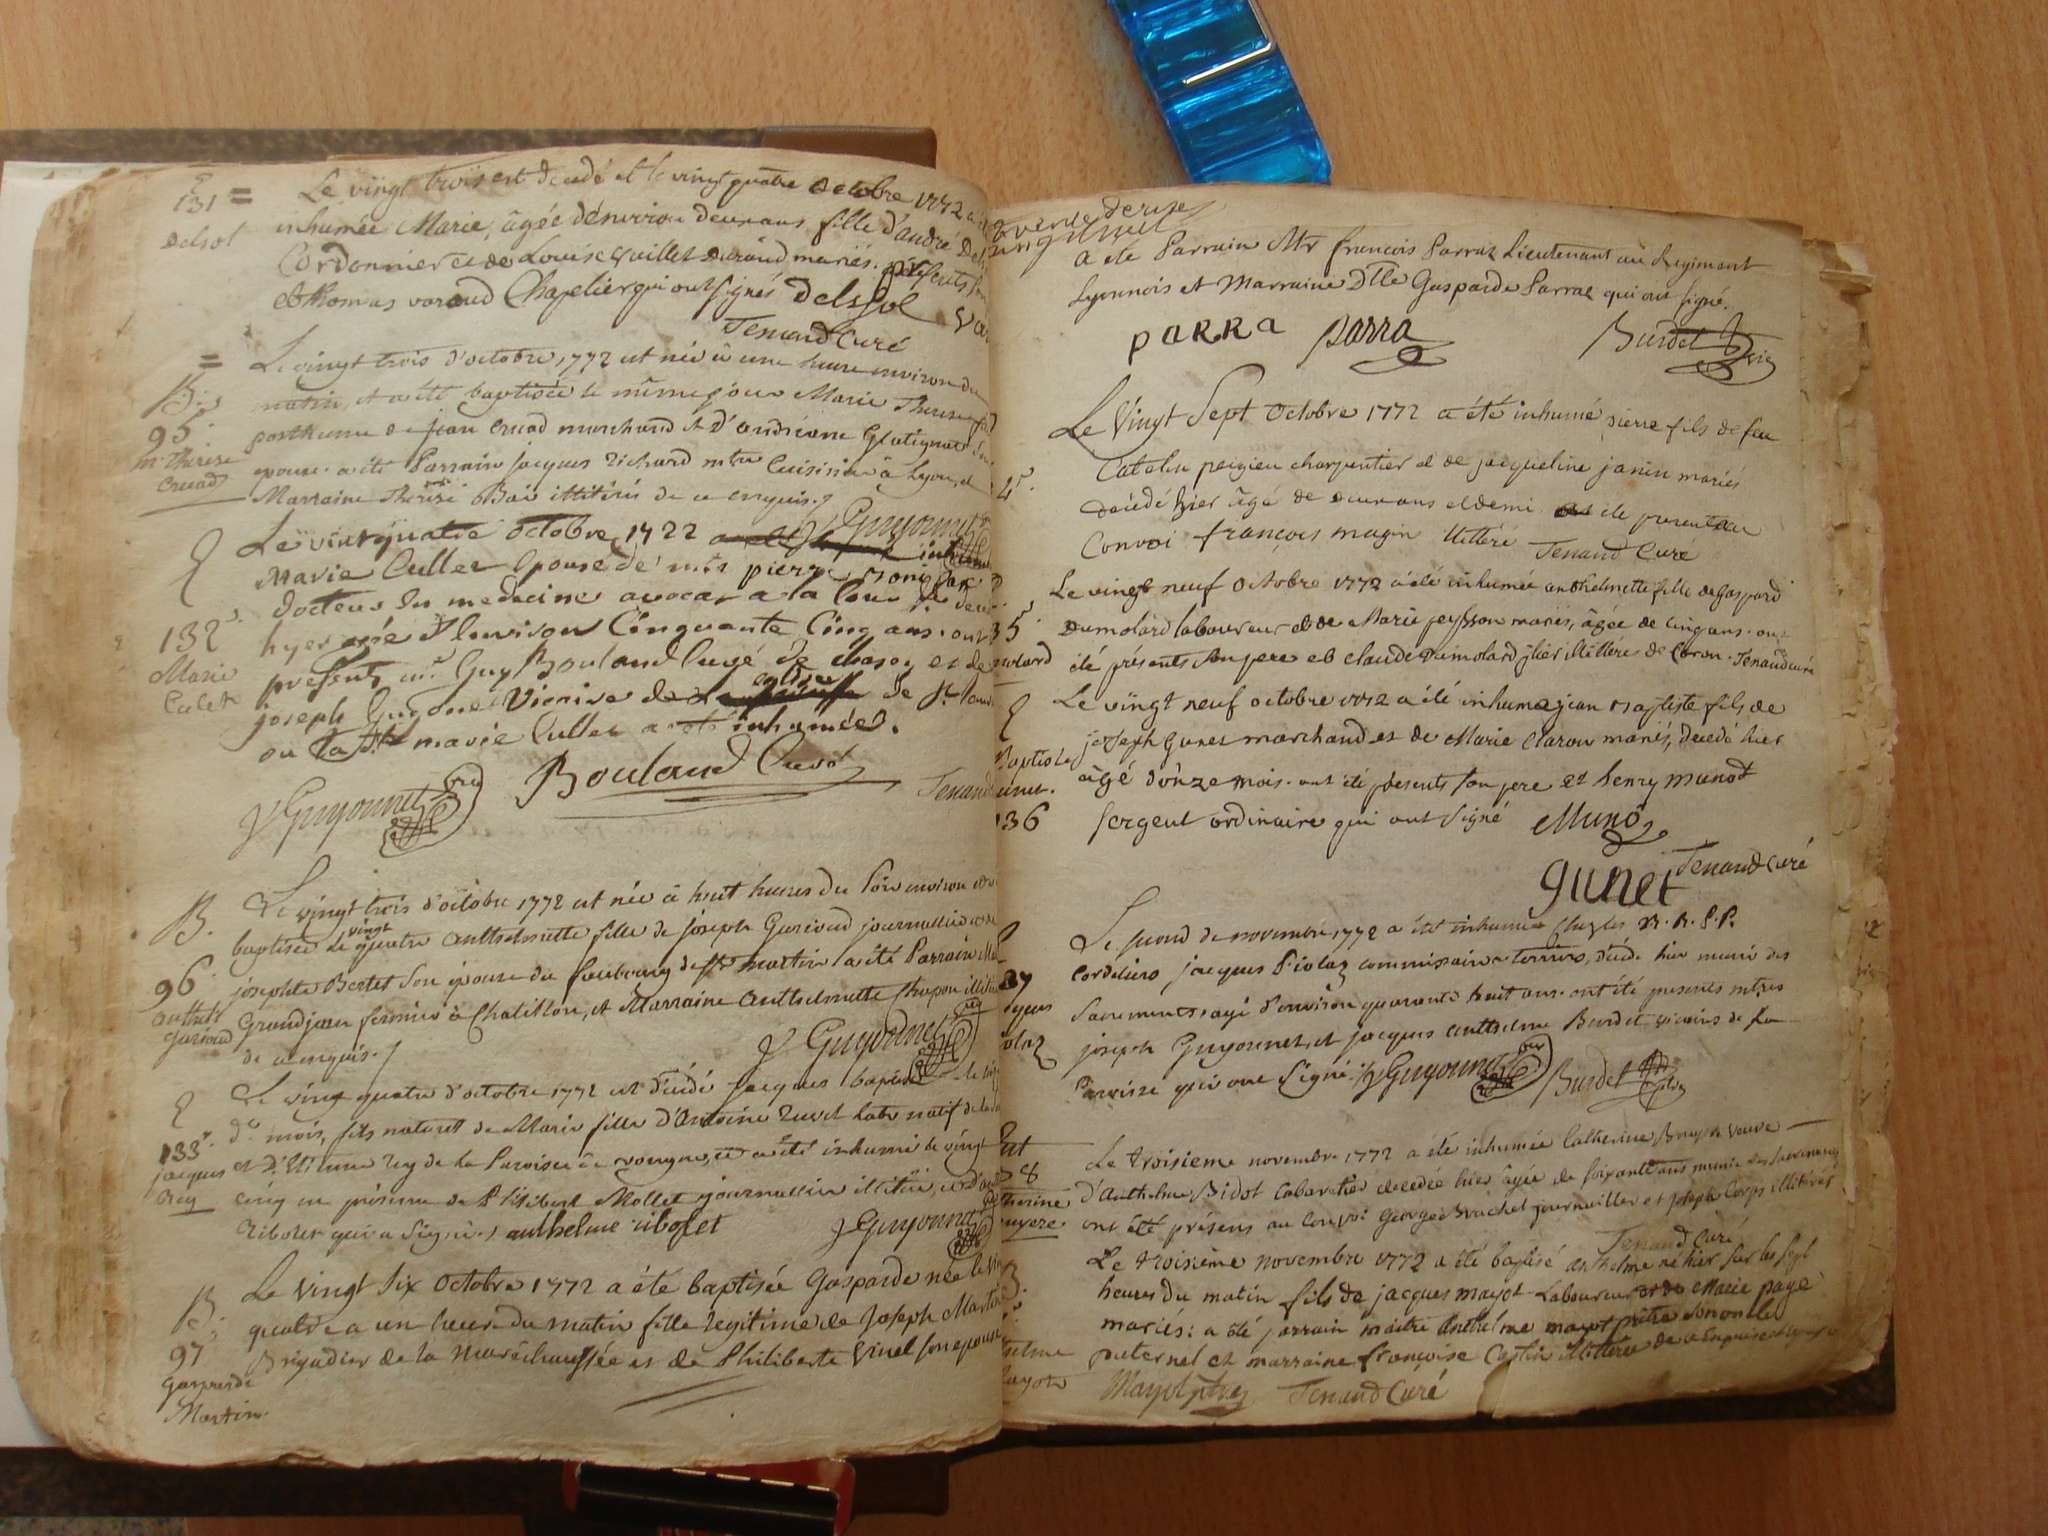 131
delsol
Le vingt trois est decedé et le vingt quatre octobre 1772 a
inhumée Marie, âgée d'environ deux ans fille d'andré
Cordonnier et de Louise Vuillet Durand mariés. présents
et thomas vorand Chapelier qui ont signés delssol
Tenand Curé
B.
95
Mie Therese
Cruad
Le vingt trois d'octobre 1772 est née à une heure environ du
matin, et a été baptisée le même jour Marie Therese
posthume de jean Cruad marchand et d'andriane
epouse. a été Parrain jacques Richard mtre Cuisinier à Lyon, et
Marraine Therese illitérés de ce enquis.
Guyonnet
132
Marie
Culet
Le vint quatre octobre 1772
Marie Cullet Epouse de mtr pierre
docteur en medecine avocat a la Cour
hyer agée d'environ Cinquante Cinq ans. ont
presents mr. Guy Bouland Curé de et de
joseph Guyonnet Vicaire de de St
ou la de marie Cullet a été inhumée.
Guyonnet Bouland Curé
Tenand
B.
96
Le vingt trois d'octobre 1772 est née à huit heures du soir environ et
baptisée le vingt quatre anthelmette fille de joseph Gurioud journallier et de
josephte Bertet son épouse du fauboug de St martin a été Parrain
Grandjean fermier à Chatillon, et Marraine anthelmette
de ce enquis.
Guyonnet
133
jacques
Rey
Le vingt quatre d'octobre 1772 est décédé jacques baptisé le
du mois, fils naturel de Marie fille d'Antoine natif de
et d'Etienne rey de la Paroisse de a été inhumé le vingt
cinq en présence de Philibert Mollet journallier illitéré, et d'
Ribolet qui a signé. anthelme ribolet Guyonnet
B.
97
Gasparde
Martin
Le vingt six octobre 1772 a été baptisée Gasparde née le
quatre a un heure du matin fille legitime de Joseph Martin
Brigadier de la maréchaussée et de Philiberte Vinel son epouse
a été Parrain Mtr francois Parraz Lieutenant au Regiment
Lyonnois et Marraine Dlle Gasparde Parraz qui ont signé.
PARRA parra Burdet
Le Vingt Sept octobre 1772 a été inhumé pierre fils de feu
perzieu charpentier et de jacqueline janin mariés
decédé hier âgé de deux ans et demi
Convoi françois magin illitéré Tenand Curé
35
Le vingt neuf octobre 1772 a été inhumée anthelmette fille de Gaspard
Dumolard laboureur et de Marie peysson mariés, âgée de cinq ans. ont
été présents son pere et claude Dumolard illitérés de Coron. Tenand curé
Baptiste
136
Le vingt neuf octobre 1772 a été inhumé jean Baptiste fils de
joseph Gunet marchand et de Marie Claron mariés, decedé hier
âgé d'onze mois. ont été présents son pere et henry munod
sergent ordinaire qui ont signé Muno
gunet Tenand Curé
37
Le second de novembre 1772 a été inhumé R. R. P. P.
Cordeliers jacques Piolaz commissaire a terriers, décédé hier muni des
sacrements, agé d'environ quarante huit ans. ont été presents mtres
joseph Guyonnet, et jacques anthelme Burdet vicaires de la
Paroisse qui ont signé. Guyonnet Burdet
38
Le troisieme novembre 1772 a été inhumée Catherine Bruyere veuve
d'Anthelme Bidot Cabaretier decedée hier âgée de soixante ans munie des sacrements
ont été présens au Convoi George Brachet journallier et joseph Corps illitérés
Tenand Curé
Le troisième novembre 1772 a été baptisé anthelme né hier sur les sept
heures du matin fils de jacques mayot Laboureur et de Marie page
mariés: a été parrain maitre anthelme mayot prêtre son oncle
paternel et marraine françoise Castin illitérée de ce enquise
Mayot ptre Tenand Curé